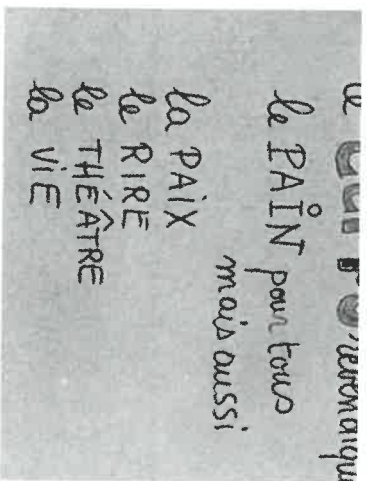 le revendiqu
le PAiN pour tous
mais aussi
la PAiX
le RIRE
le THÉÂTRE
la ViE